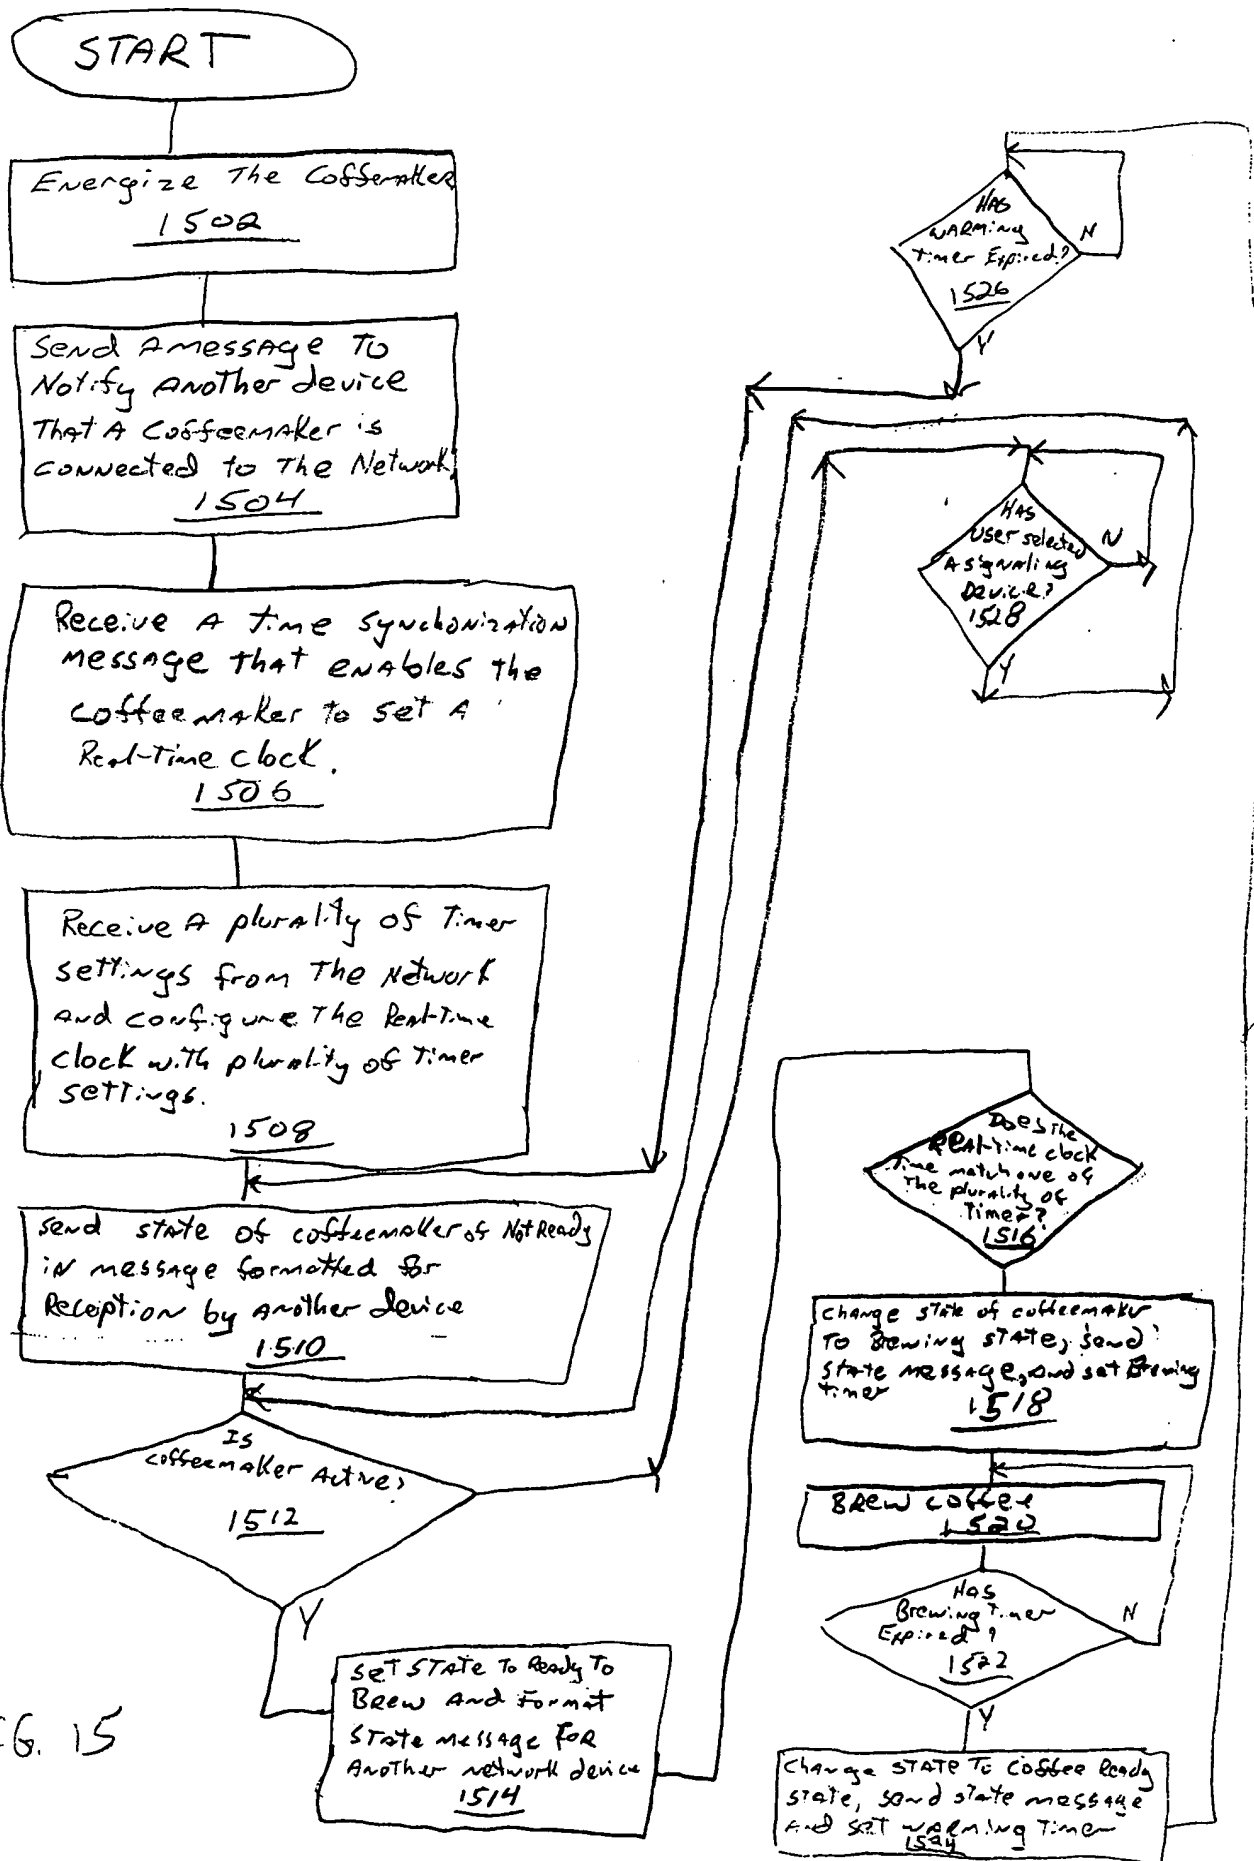 START
Energize The Coffemaker
1502
Send A message To
Notify Another device
That A Coffeemaker is
connected to The Network.
1504
Receive A time synchonization
message that enables the
coffeemaker to set A
Real-Time clock.
1506
Receive A plurality of Timer
settings from The Network
and configure The Real-Time
clock with plurality of Timer
settings.
1508
Send state of coffeemaker of Not Ready
in message formatted for
Reception by another device
1510
Is
coffeemaker Active?
1512
Y
Set STATE To Ready To
Brew And Format
State message For
Another network device
1514
Has
warming
timer Expired?
1526
N
Y
Has
user selected
A signaling
Device?
1528
N
Y
Does the
Real-Time clock
Time match one of
The plurality of
Timer?
1516
Change state of coffeemaker
To Brewing state, send
state message, and set Brewing
timer
1518
Brew coffee
1520
Has
Brewing Timer
Expired?
1522
N
Y
Change STATE To Coffee Ready
state, send state message
and set warming Timer
1524
G. 15